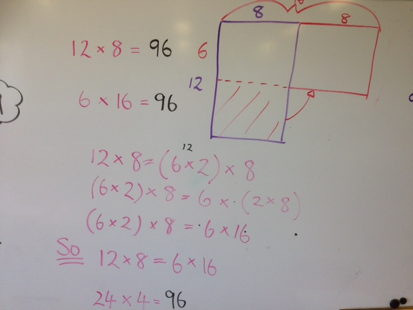 8 8
12 × 8 = 96 6
12
6 × 16 = 96
12
12 × 8 = (6 × 2) × 8
(6 × 2) × 8 = 6 × (2 × 8)
(6 × 2) × 8 = 6 × 16
So 12 × 8 = 6 × 16
24 × 4 = 96